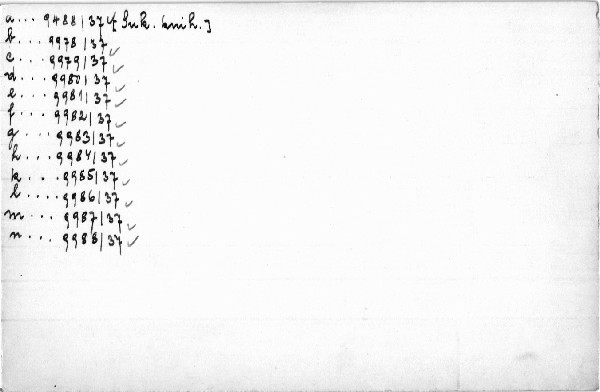 a... 9488/37 [Suk. knih.]
b... 9978/37
c... 9979/37 ✓
d... 9980/37 ✓
e... 9981/37 ✓
f... 9982/37 ✓
g... 9983/37 ✓
h... 9984/37 ✓
k... 9985/37 ✓
l... 9986/37 ✓
m... 9987/37 ✓
n... 9988/37 ✓